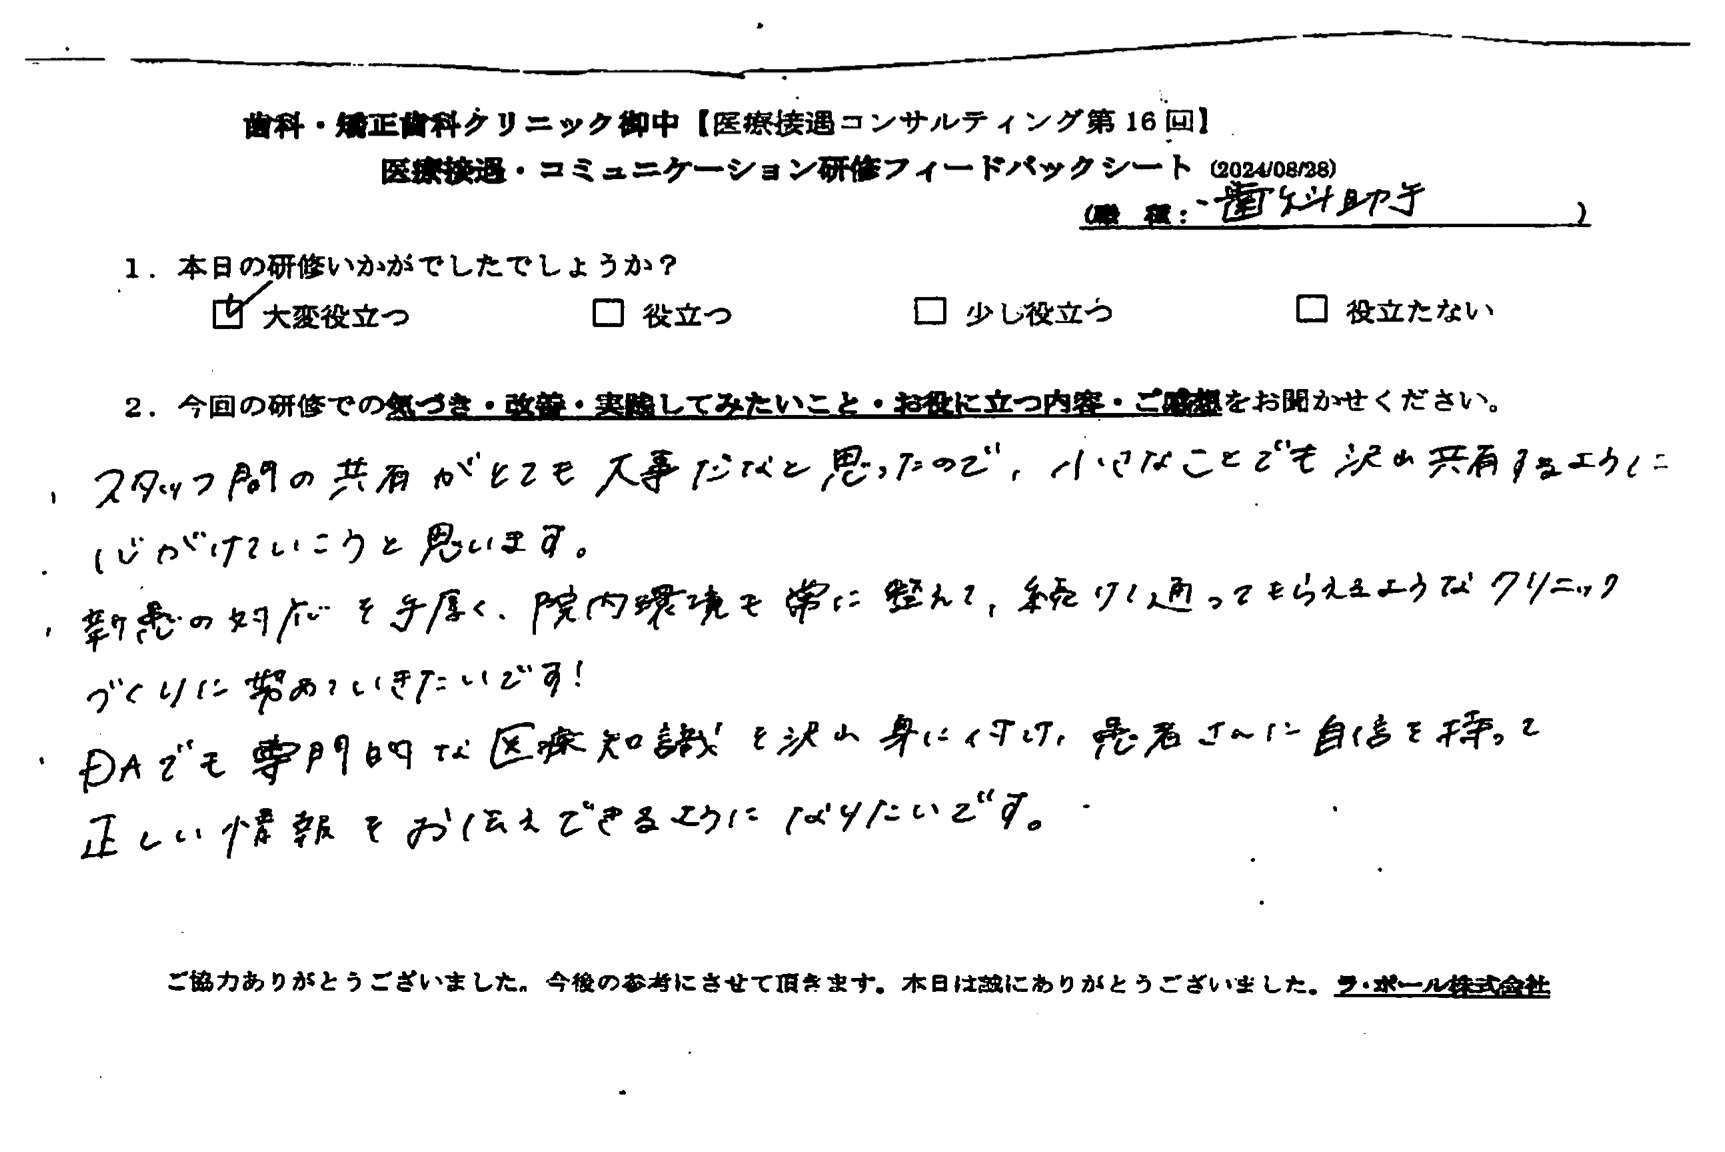 歯科・矯正歯科クリニック御中【医療接遇コンサルティング第16回】
医療接遇・コミュニケーション研修フィードバックシート (2024/08/28)
(職　種: 歯科助手 )
1. 本日の研修いかがでしたでしょうか？
☑ 大変役立つ □ 役立つ □ 少し役立つ □ 役立たない
2. 今回の研修での気づき・改善・実践してみたいこと・お役に立つ内容・ご感想をお聞かせください。
・スタッフ間の共有がとても大事だなと思ったので、小さなことでも沢山共有するように
心がけていこうと思います。
・新患の対応を手厚く、院内環境も常に整えて、続けて通ってもらえるようなクリニック
づくりに努めていきたいです!
・DAでも専門的な医療知識を沢山身に付け、患者さんに自信を持って
正しい情報をお伝えできるようになりたいです。
ご協力ありがとうございました。今後の参考にさせて頂きます。本日は誠にありがとうございました。ラ・ポール株式会社